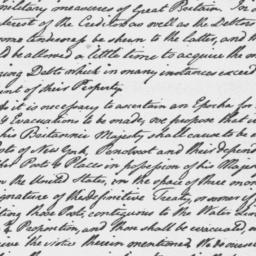 military measures of Great Britain. In
terest of the Creditors as well as the Debtors
some tenderness be shewn to the latter, and th
ld be allowed a little time to acquire the
ing Debts which in many instances exceed
nt of their Property.
As it is necessary to ascertain an Epocha for
& Evacuations to be made, we propose that
his Britannic Majesty, shall cause to be
sts of New York, Penobscot and their depend
other Post & Place in possession of his Maj
in the United States, in the space of three mon
signature of the definitive Treaty, or sooner if
ting those Posts contiguous to the Water Line
Proposition, and those shall be evacuated,
ive the notice therein mentioned. We do